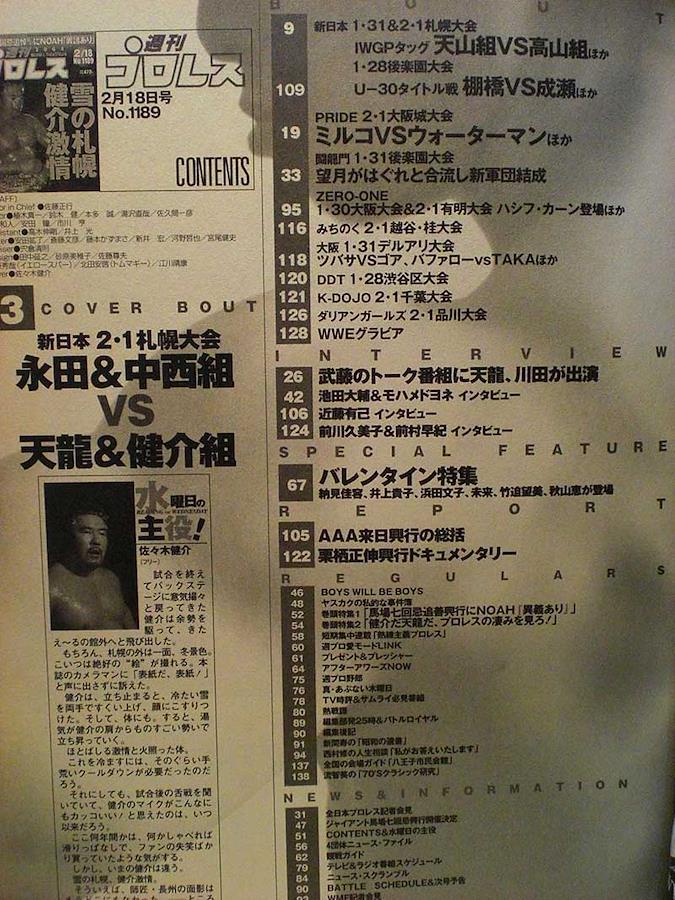 週刊
プロレス
2月18日号
No.1189
CONTENTS
2/18
No.1189
雪の札幌
健介激情
3 COVER BOUT
新日本 2・1札幌大会
永田&中西組
VS
天龍&健介組
水曜日の
主役!
佐々木健介
(フリー)
試合を終え
てバックステ
ージに意気揚々
と戻ってきた
健介は余勢を
駆って、きた
え〜るの館外へと飛び出した。
もちろん、札幌の外は一面、冬景色。
こいつは絶好の“絵”が撮れる。本
誌のカメラマンに「表紙だ、表紙!」
と声に出さずに訴えた。
健介は、立ち止まると、冷たい雪
を両手ですくい上げ、顔にこすりつ
けた。そして、体にも。すると、湯
気が健介の肩からものすごい勢いで
立ち昇っていく。
ほとばしる激情と火照った体。
これを冷ますには、そのぐらい手
荒いクールダウンが必要だったのだ
ろう。
それにしても、試合後の舌戦を聞
いていて、健介のマイクがこんなに
もカッコいい!と思えたのは、いつ
以来だろう。
ここ何年間かは、何かしゃべれば
滑りっぱなしで、ファンの失笑ばか
り買っていたような気がする。
しかし、いまの健介は違う。
雪の札幌、健介激情。
そういえば、師匠・長州の面影は
BOUT
9 新日本 1・31&2・1札幌大会
IWGPタッグ 天山組VS高山組ほか
1・28後楽園大会
109 U-30タイトル戦 棚橋VS成瀬ほか
PRIDE 2・1大阪城大会
19 ミルコVSウォーターマンほか
闘龍門 1・31後楽園大会
33 望月がはぐれと合流し新軍団結成
ZERO-ONE
95 1・30大阪大会&2・1有明大会 ハシフ・カーン登場ほか
116 みちのく 2・1越谷・桂大会
大阪 1・31デルアリ大会
118 ツバサVSゴア、バファローvsTAKAほか
120 DDT 1・28渋谷区大会
121 K-DOJO 2・1千葉大会
126 ダリアンガールズ 2・1品川大会
128 WWEグラビア
INTERVIEW
26 武藤のトーク番組に天龍、川田が出演
42 池田大輔&モハメドヨネ インタビュー
106 近藤有己 インタビュー
124 前川久美子&前村早紀 インタビュー
SPECIAL FEATURE
67 バレンタイン特集
納見佳容、井上貴子、浜田文子、未来、竹迫望美、秋山恵が登場
REPORT
105 AAA来日興行の総括
122 栗栖正伸興行ドキュメンタリー
REGULARS
46 BOYS WILL BE BOYS
48 ヤスカクの私的な事件簿
52 巻頭特集1「馬場七回忌追善興行にNOAH『異義あり』」
54 巻頭特集2「健介だ天龍だ、プロレスの凄みを見ろ!」
58 短期集中連載「熱線主義プロレス」
60 週プロ愛モードLINK
61 プレゼント&プレッシャー
64 アフターアワーズNOW
75 週プロ野郎
76 真・あぶない木曜日
78 TV時評&サムライ必見番組
80 熱戦譜
89 編集部発25時&バトルロイヤル
90 編集後記
91 新間寿の「昭和の遺書」
94 西村修の人生相談「私がお答えいたします」
137 全国の会場ガイド「八王子市民会館」
138 流智美の「70'Sクラシック研究」
NEWS&INFORMATION
31 全日本プロレス記者会見
47 ジャイアント馬場七回忌興行開催決定
51 CONTENTS&水曜日の主役
56 4団体ニュース・ファイル
62 観戦ガイド
79 テレビ&ラジオ番組スケジュール
84 ニュース・スクランブル
90 BATTLE SCHEDULE&次号予告
WMF記者会見